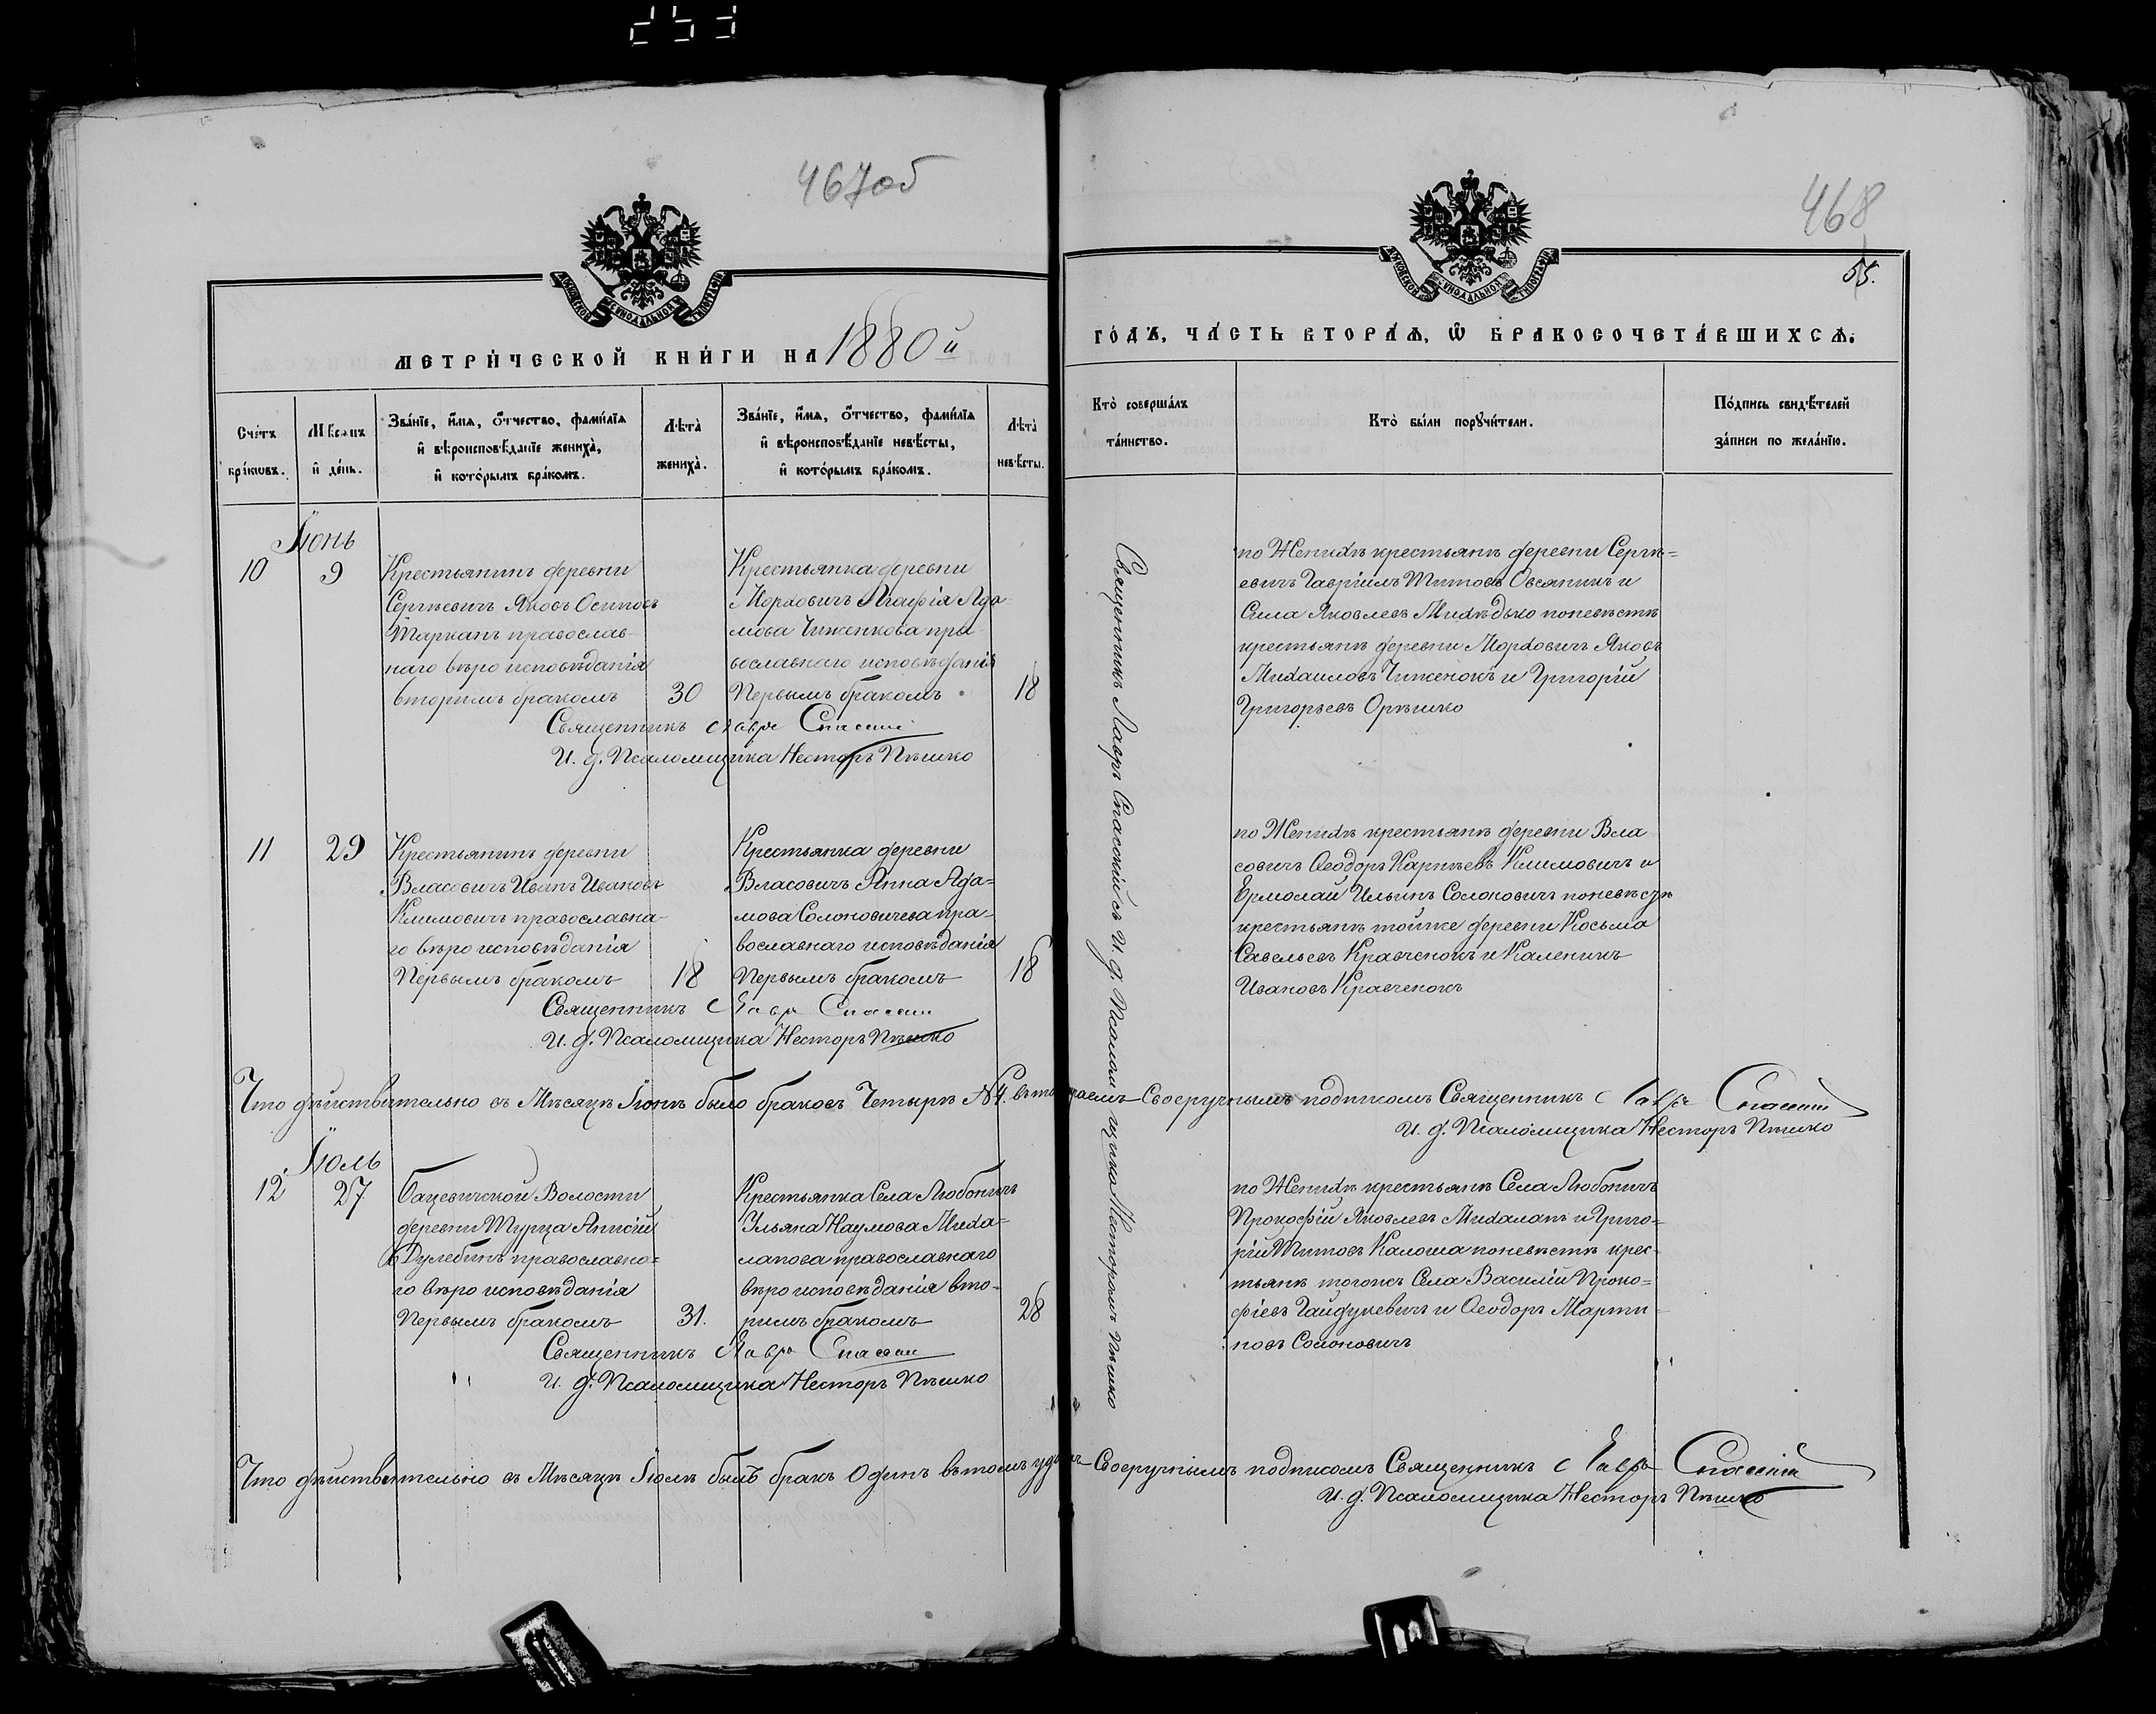 467об
468
55.
МОСКОВСКОЙ СѴНОДАЛЬНОЙ ТИПОГРАФІИ
МОСКОВСКОЙ СѴНОДАЛЬНОЙ ТИПОГРАФІИ
МЕТРИ́ЧЕСКОЙ КНИ́ГИ НА 1880й
ГО́ДЪ, ЧА́СТЬ ВТОРА́Ѧ, Ѽ БРАКОСОЧЕТА́ВШИХСѦ.
Сче́тъ бра́кѡвъ.
Мѣсѧцъ и҆ де́нь.
Зва́нїе, и҆́мѧ, ѻ҆́тчество, фами́лїѧ
и҆ вѣроисповѣ́данїе жениха̀,
и҆ кото́рымъ бра́комъ.
Лѣта̀ жениха̀.
Зва́нїе, и҆́мѧ, ѻ҆́тчество, фами́лїѧ
и҆ вѣроисповѣ́данїе невѣ́сты,
и҆ кото́рымъ бра́комъ.
Лѣта̀ невѣ́сты.
Кто̀ соверша́лъ та́инство.
Кто̀ бы́ли порꙋчи́тели.
По́дпись свидѣ́телей
за́писи по жела́нїю.
Іюнь
10
9
Крестьянинъ деревни
Сергѣевичъ Яковъ Осиповъ
Тарканъ православ-
наго вѣро исповѣданія
вторимъ бракомъ
30
Крестьянка деревни
Морховичъ Агафія Ада-
мова Чиженкова пра-
вославнаго исповѣданія
Первымъ бракомъ
18
Священникъ Лавръ Спасскій
И. д. Псаломщика Несторъ Пѣшко
по Женихѣ крестьянѣ деревни Сергѣ=
евичъ Гавріилъ Титовъ Овсяникъ и
Сила Яковлевъ Михѣдько поневѣстѣ
крестьянѣ деревни Морховичъ Яковъ
Михаиловъ Чиженокъ и Григорій
Григорьевъ Орѣшко
Священникъ Лавръ Спасскій съ И. д. Псаломщика Несторомъ Пѣшко
11
29
Крестьянинъ деревни
Власовичъ Иванъ Ивановъ
Климовичъ православна-
го вѣро исповѣданія
Первымъ бракомъ
18
Крестьянка деревни
Власовичъ Анна Ада=
мова Солоновичева пра-
вославнаго исповѣданія
Первымъ бракомъ
18
Священникъ Лавръ Спасскій
И. д. Псаломщика Несторъ Пѣшко
по Женихѣ крестьянѣ деревни Вла
совичъ Ѳеодоръ Карпѣевъ Климовичъ и
Ермолай Ильинъ Солоновичъ поневѣстѣ
крестьянѣ тойже деревни Косьма
Савельевъ Кравченокъ и Каленикъ
Ивановъ Кравченокъ
Что дѣйствительно въ Мѣсяцѣ Іюнѣ было браковъ Четырѣ №4. въ томъ Своеручнымъ подписомъ Священникъ Лавръ Спасскій
И. д. Псаломщика Несторъ Пѣшко
Іюль
12
27
Бацевичской Волости
деревни Турца Анисій
Дулебинъ православно=
го вѣро исповѣданія
Первымъ бракомъ
31.
Крестьянка Села Любоничъ
Ульяна Наумова Миха-
ланова православнаго
вѣро исповѣданія вто-
римъ бракомъ
28
Священникъ Лавръ Спасскій
И. д. Псаломщика Несторъ Пѣшко
по Женихѣ крестьянѣ Села Любоничъ
Прокофій Яковлевъ Михаланъ и Григо=
рій Титовъ Калоша поневѣстѣ крес-
тьянѣ тогожъ Села Василій Проко=
фіевъ Гайдукевичъ и Ѳеодоръ Марти-
новъ Солоновичъ
Что дѣйствительно въ Мѣсяцѣ Іюлѣ былъ бракъ Одинъ въ томъ Своеручнымъ подписомъ Священникъ Лавръ Спасскій
И. д. Псаломщика Несторъ Пѣшко